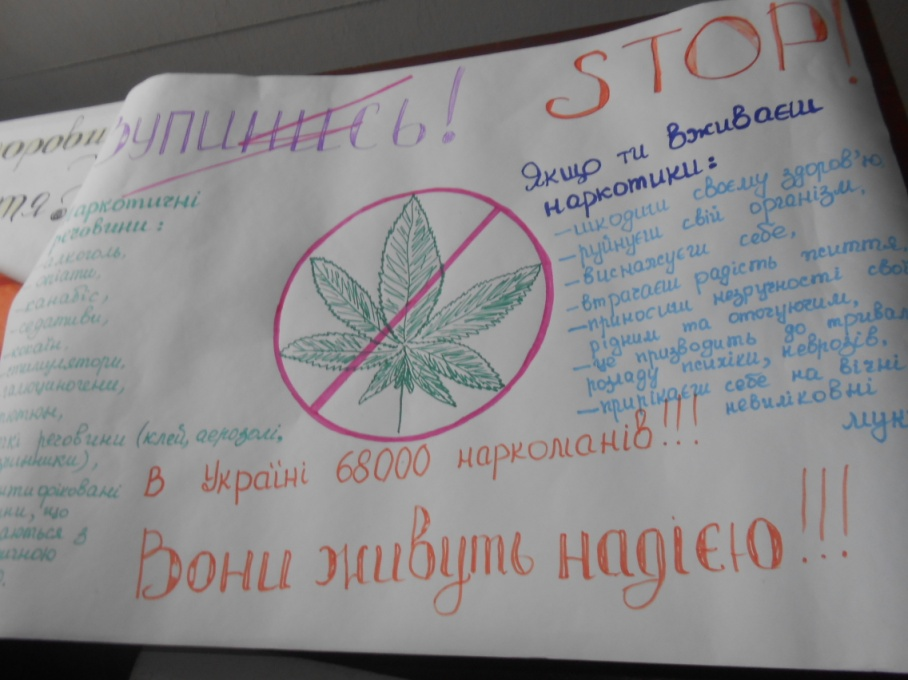 зупинись!
STOP!
наркотичні
речовини:
алкоголь,
опіати,
-канабіс,
-седативи,
-кокаїн.
стимулятори,
галюциногени,
тютюн,
речовини (клей, аерозолі,
Якщо ти вживаєш
наркотики:
-шкодиш своєму здоров'ю,
-руйнуєш свій організм,
-виснажуєш себе,
-втрачаєш радість життя,
-приносиш незручності свої
рідним та оточуючим,
-це призводить до тривал
розладу психіки, неврозів,
-прирікаєш себе на вічні
невиліковні
мук
В Україні 68000 наркоманів!!!
Вони живуть надією!!!